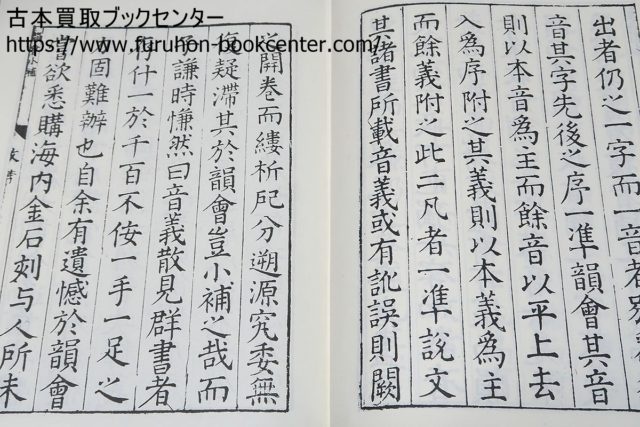 古本買取ブックセンター
https://www.furuhon-bookcenter.com/
出者仍之一字而一音者
音其字先後之序一準韻會其音
則以本音為主而餘音以平上去
入為序附之其義則以本義為主
而餘義附之此二凡者一準說文
其諸書所載音義或有訛誤則闕
開卷而縷析𣲖分遡源究委無
復疑滯其於韻會豈小補之哉而
子謙時慊然曰音義散見群書者
什一於千百不佞一手一足之
力固難辦也自余有遺憾於韻會
嘗欲悉購海内金石刻与人所未
小補